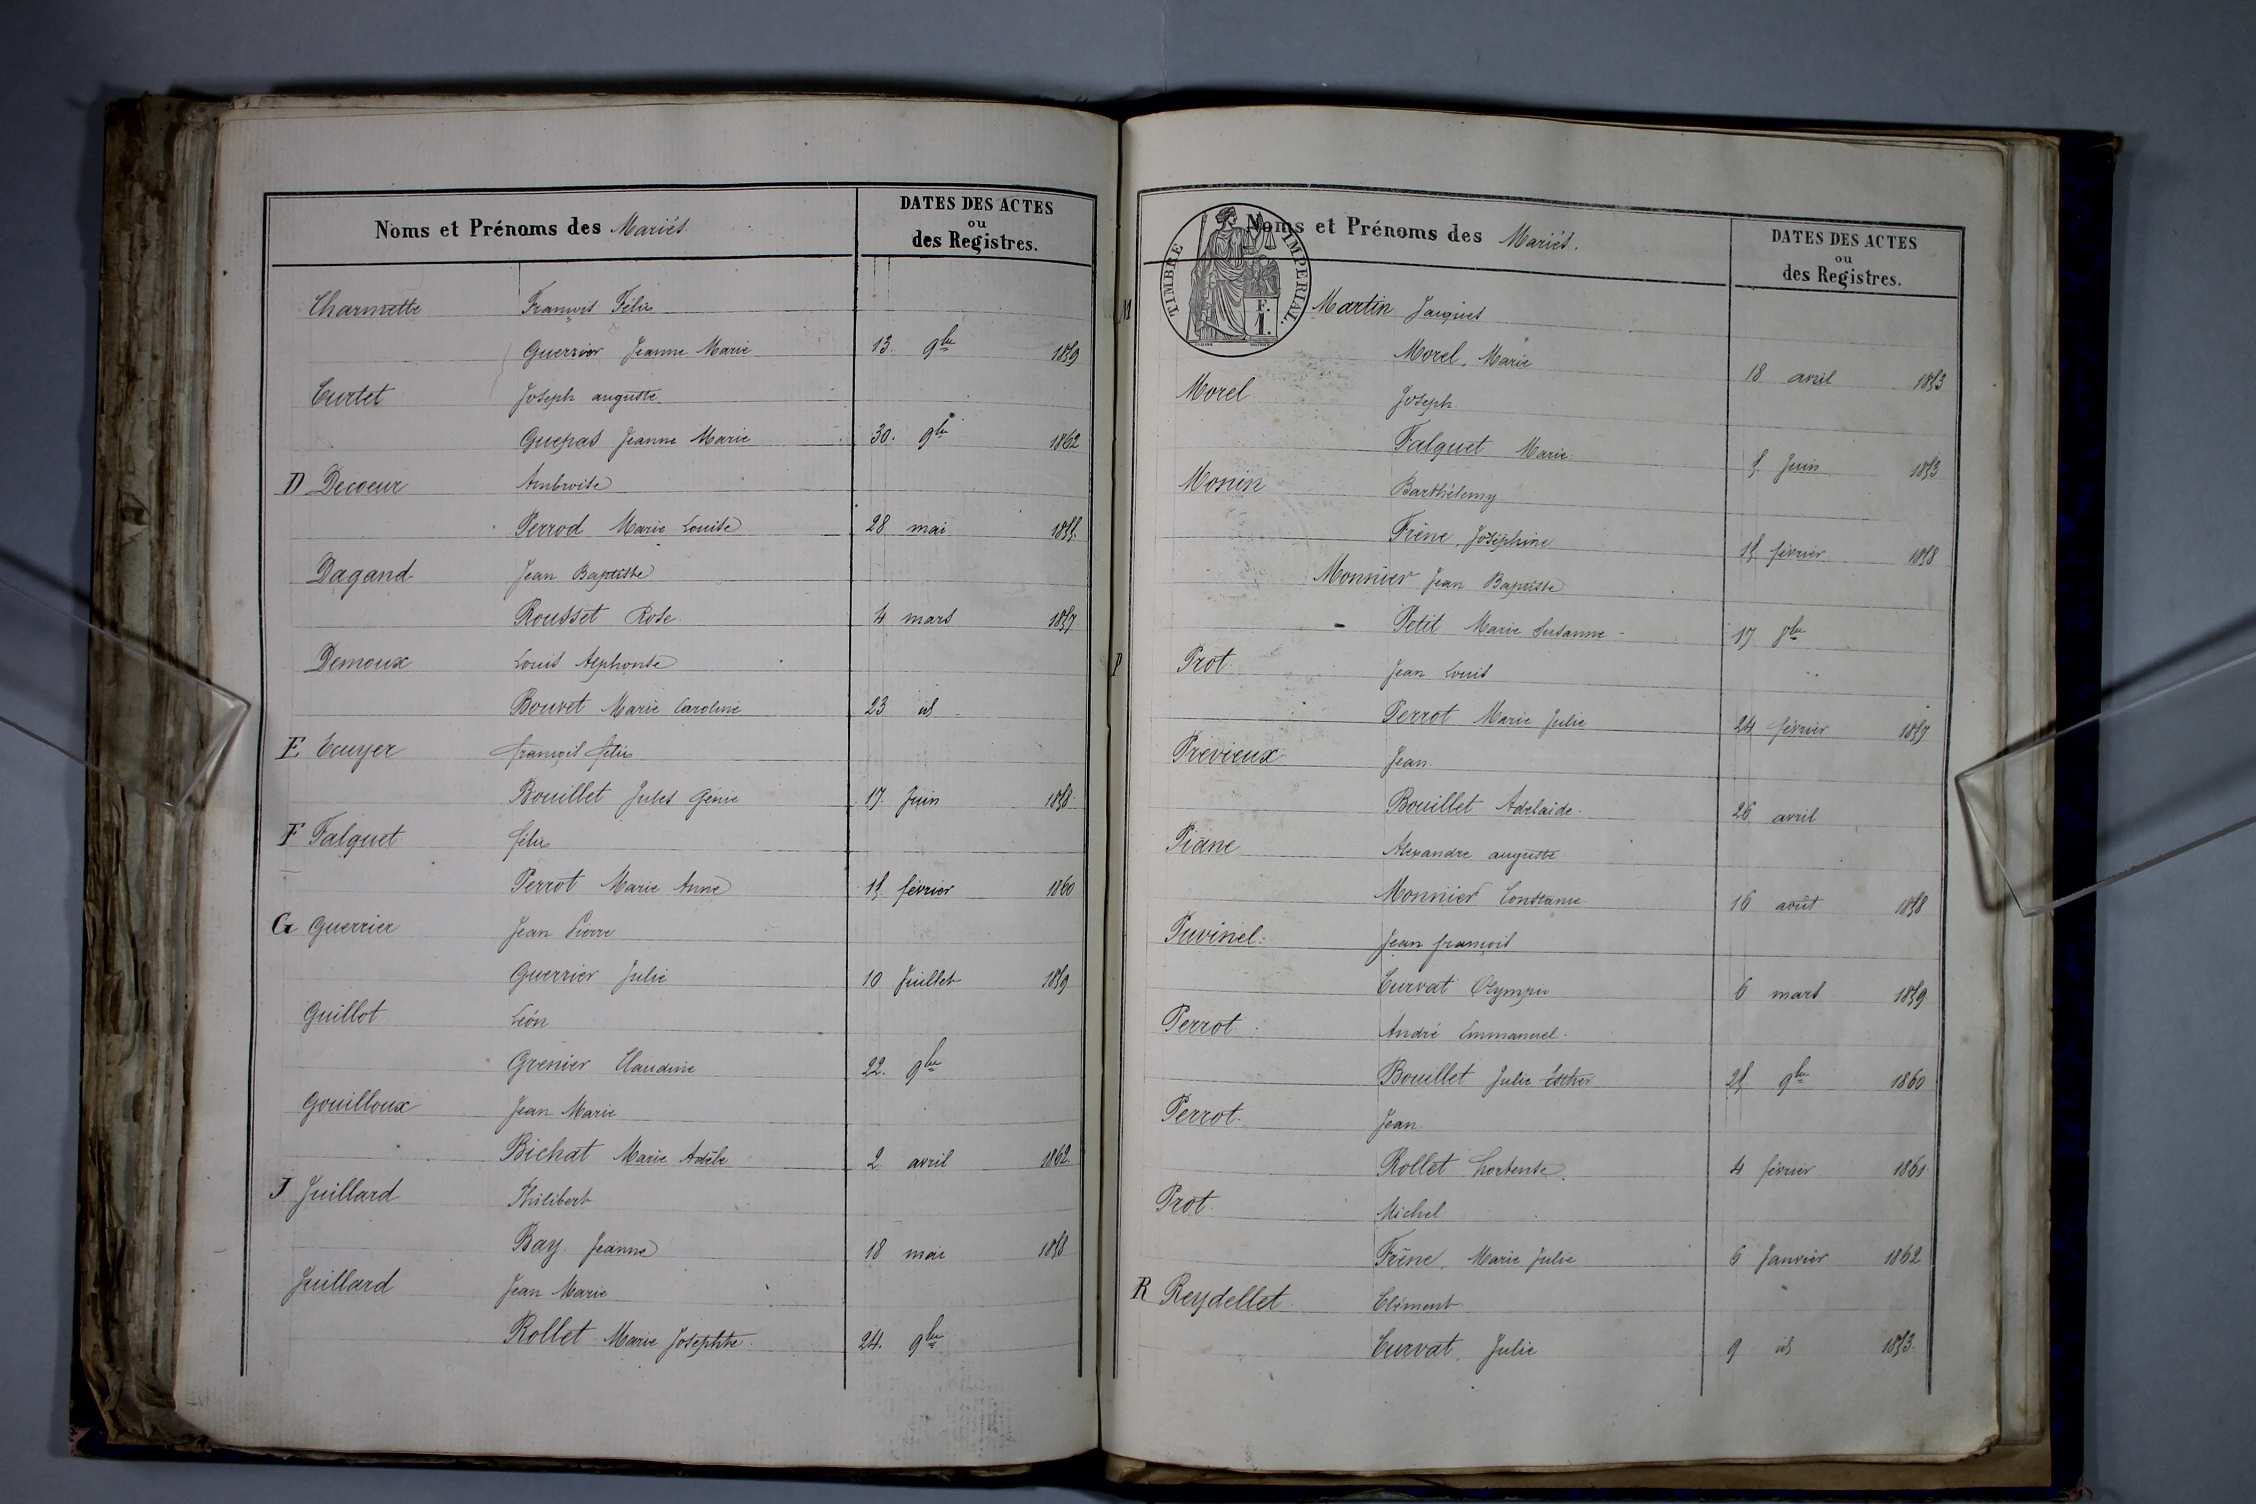 Noms et Prénoms des Mariés.
DATES DES ACTES
ou
des Registres.
Charmette François Félix
Guerrier Jeanne Marie 13. 9bre 1859
Curtet Joseph auguste
Guepas Jeanne Marie 30. 9bre 1862
D Decoeur Ambroise
Perrod Marie Louise 28 mai 1855.
Dagand Jean Baptiste
Rousset Rose 4 mars 1857
Demoux Louis Alphonse
Bouvet Marie Caroline 23 id
E Ecuyer françois félix
Bouillet Jules Génie 17. Juin 1858.
F Falquet félix
Perrot Marie Anne 15 février 1860
G Guerrier Jean Pierre
Guerrier Julie 10 Juillet 1859
Guillot Léon
Grenier Claudine 22. 9bre
Gouilloux Jean Marie
Bichat Marie Adèle 2 avril 1862
J Juillard Philibert
Bay. Jeanne 18 mai 1858
Juillard Jean Marie
Rollet Marie Josephte. 24. 9bre
Noms et Prénoms des Mariés.
DATES DES ACTES
ou
des Registres.
TIMBRE IMPERIAL.
F.
1.
M Martin Jacques
Morel. Marie 18 avril 1853
Morel Joseph
Falquet Marie. 5 Juin 1853
Monin Barthélemy
Frêne. Joséphine 15 février 1858
Monnier Jean Baptiste
Petit Marie Susanne 17 8bre
P Prot. Jean Louis
Perrot Marie Julie 24 février 1857
Previeux Jean.
Bouillet Adelaide. 26 avril
Piane Alexandre auguste
Monnier Constance 16 août 1858
Puvinel. Jean françois
Curvat Olympe 6 mars 1859
Perrot. André Emmanuel.
Bouillet Julie Esther 25 9bre 1860
Perrot. Jean.
Rollet hortense. 4 février 1861
Prot. Michel
Frêne. Marie Julie 6 Janvier 1862
R Reydellet. Clément
Curvat. Julie 9 id 1853.